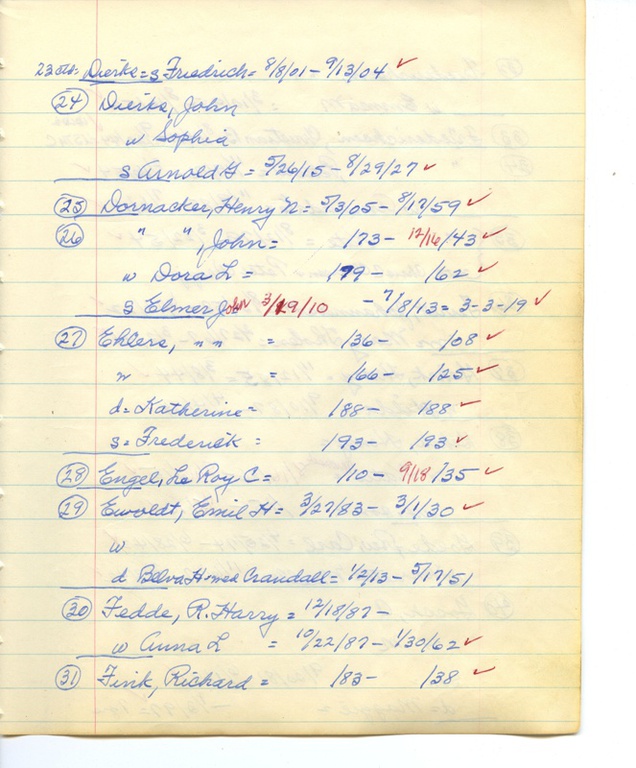 Dierks = s Friedrich = 8/8/01 - 9/13/04 ✓
24 Dierks, John
w Sophia
s Arnold G = 5/26/15 - 8/29/27 ✓
25 Dornacker, Henry N = 5/3/05 - 8/17/59 ✓
26 " ", John = /73 - 12/16/43 ✓
w Dora L = 179 - /62 ✓
s Elmer John 3/29/10 - 7/8/13 = 3-3-19 ✓
27 Ehlers, " " = /36 - /08 ✓
w = /66 - /25 ✓
d = Katherine = /88 - /88 ✓
s = Frederick = /93 - /93 ✓
28 Engel, Le Roy C = /10 - 9/18/35 ✓
29 Ewoldt, Emil H = 3/27/83 - 3/1/30 ✓
w
d Belva H = wed Crandall = 1/2/13 - 5/17/51
30 Fedde, R. Harry = 12/18/87 -
w Anna L = 10/22/87 - 1/30/62 ✓
31 Fink, Richard = /83 - /38 ✓